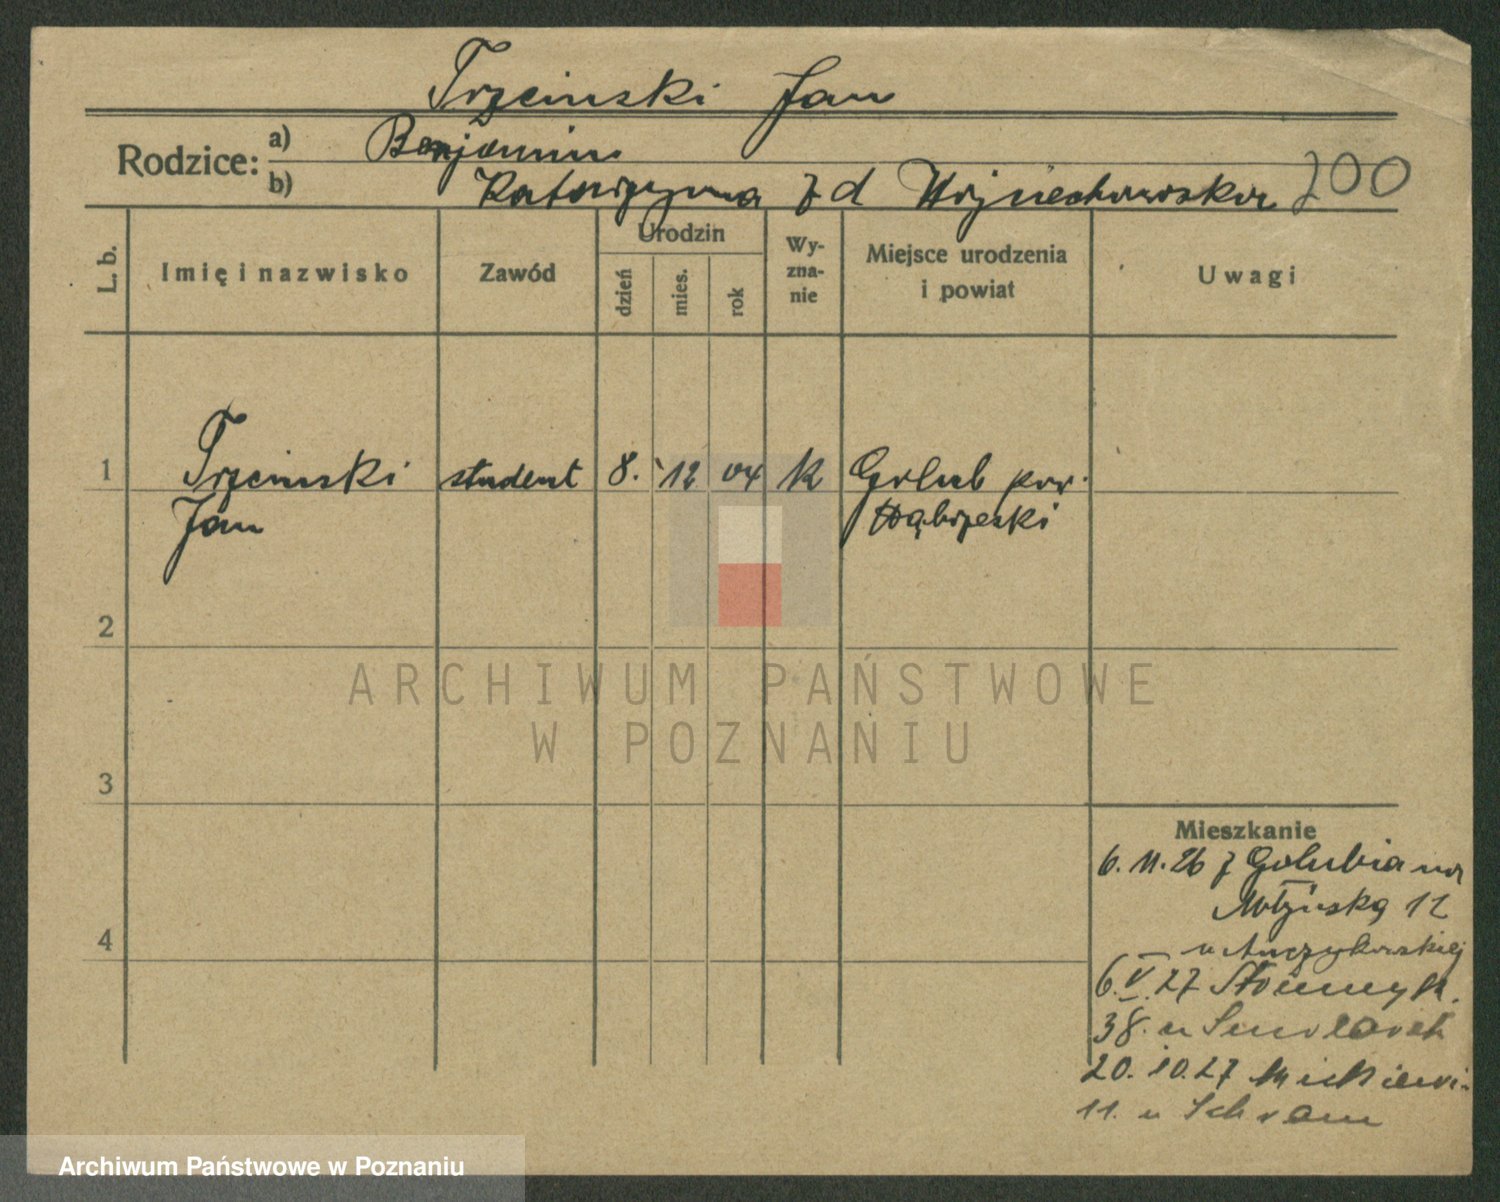 Trzcinski Jan
Rodzice: a) Benjamin
b) Katarzyna z d Wojciechowska 200
L. b. Imię i nazwisko Zawód Urodzin dzień mies. rok Wy-zna-nie Miejsce urodzenia i powiat Uwagi
1 Trzcinski student 8. 12 04 k Golub pow.
Jan Wąbrzeski
2
3
4
Mieszkanie
6. 11. 26 z Golubia na
11
u
6. V. 27 Słonecznik.
38. u
20. 10. 27 Mickiewi.
11. u Schram
ARCHIWUM PAŃSTWOWE
W POZNANIU
Archiwum Państwowe w Poznaniu